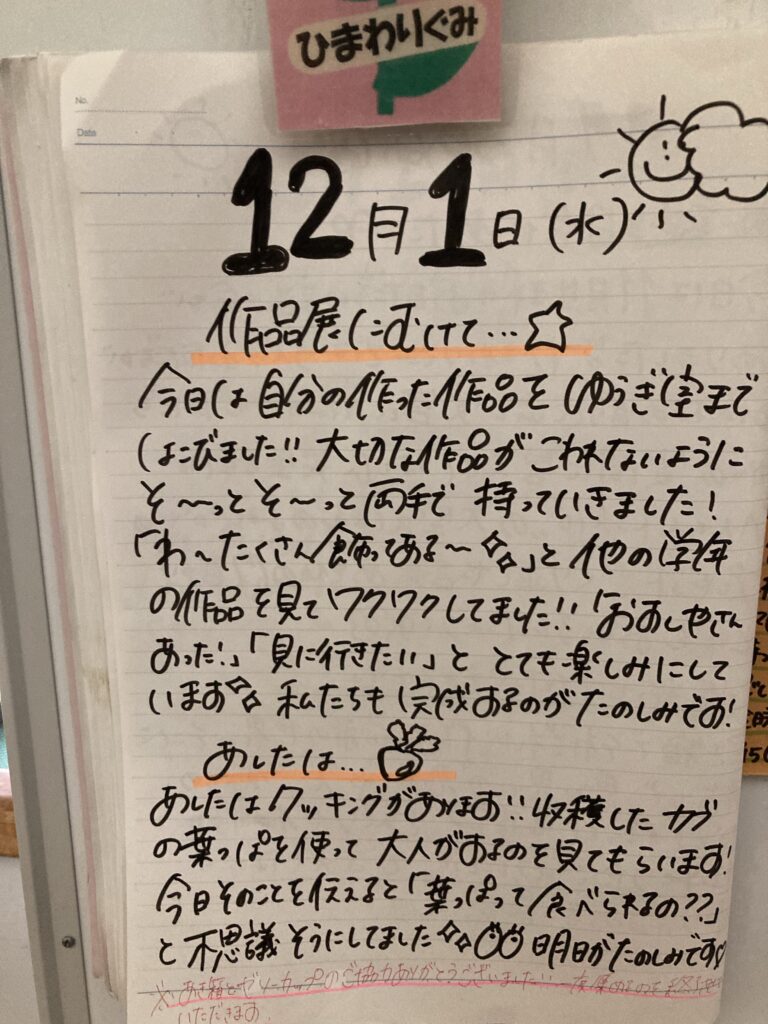 ひまわりぐみ
No.
Date
12月1日(水)
作品展にむけて…☆
今日は自分の作った作品をゆうぎ室まで
はこびました!! 大切な作品がこわれないように
そ〜っとそ〜っと両手で 持っていきました!
「わ〜たくさん飾ってある〜✧」と他の学年
の作品を見てワクワクしてました!!「おすしやさん
あった!」「見に行きたい」ととても楽しみにして
います✧ 私たちも完成するのがたのしみです!
あしたは…
あしたはクッキングがあります!! 収穫したカブ
の葉っぱを使って 大人がするのを見てもらいます!
今日そのことを伝えると「葉っぱって食べられるの??」
と不思議そうにしてました✧ 明日がたのしみです!
※あき箱とゼリーカップのご協力ありがとうございました!!
いただきます。